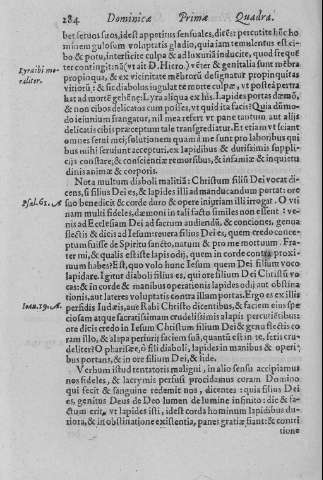 284 Dominicæ Primæ Quadra.
bet seruos suos, idest appetitus sensuales, dicēs: percutite hūc ho
minem gulosum voluptatis gladio, quia iam temulentus est ci-
bo & potu, interficite culpa & ad luxuriā inducite, quod frequē
ter contingit: nā (vt ait D. Hiero.) vēter & genitalia sunt mēbra
Lyra ibi mo-
raliter.
propinqua, & ex vicinitate mēbrorū designatur propinquitas
vitiorū: & sic diabolus iugulat te morte culpæ, vt postea pertra
hat ad mortē gehēnę: Lyra aliqua ex his. Lapides portas dæmō,
& non cibos delicatos cum possies, vt quid ita facis? Quia dūmo
do ieiunium frangatur, nil mea refert vt pane tantum aut alijs
delicatis cibis præceptum tale transgrediatur. Et etiam vt sciant
omnes serui mei, solutionem quam à me sunt pro laboribus qui
bus mihi seruiunt accepturi, ex lapidibus & durissimis suppli-
cijs constare, & conscientiæ remorsibus, & infamiæ & inquietu
dinis animæ & corporis.
Nota multum diaboli malitiā: Christum filiū Dei vocat di-
cens, si filius Dei es, & lapides illi ad manducandum portat: ore
Psal. 61. A.
suo benedicit & corde duro & opere iniuriam illi irrogat. O vti
nam multi fideles, dæmoni in tali facto similes non essent: ve-
nis ad Ecclesiam Dei ad sacrum audiendū, & conciones, genua
flectis & dicis ad Iesum: vtera filius Dei es, quem credo conce-
ptum fuisse de Spiritu sancto, natum & pro me mortuum. Fra-
ter mi, & qualis est iste lapis odij, quem in corde contra proxi-
mum habes? Est, quo volo hunc Iesum quem Dei filium voco
lapidare. Igitur diaboli filius es, qui ore filium Dei Christū vo-
cas: & in corde & manibus operationis lapides odij aut obstina
tionis, aut lateres voluptatis contra illum portas. Ergo es ex illis
Ioan. 19. A.
perfidis Iudæis, aue Rabi Christo dicentibus, & faciem eius spe
ciosam atque sacratissimam crudelissimis alapis percutiētibus:
ore dicis credo in Iesum Christum filium Dei & genu flectis co
ram illo, & alapa periurij faciem suā, quantū est in te, feris cru-
deliter? O pharisæe, ò fili diaboli, lapides in manibus & operi-
bus portans, & in ore filium Dei, & fide.
Verbum istud tentatoris maligni, in alio sensu accipiamus
nos fideles, & lacrymis perfusi procidamus coram Domino
qui fecit & sanguine redemit nos, dicentes: quia filius Dei
es, genitus Deus de Deo lumen de lumine infinito: dic & fa-
ctum erit, vt lapides isti, idest corda hominum lapidibus du-
riora, & in obstinatione existentia, panes gratiæ fiant: & contri
tione